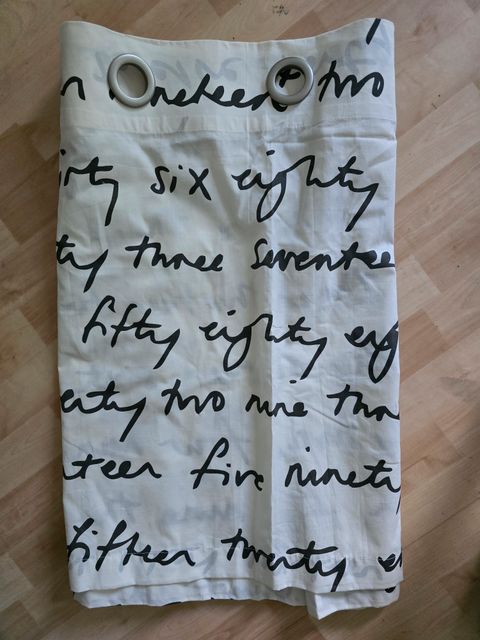 n nineteen two
irty six eighty
ty three seventee
fifty eighty eig
enty two nine thr
nteen five ninety
fifteen twenty e